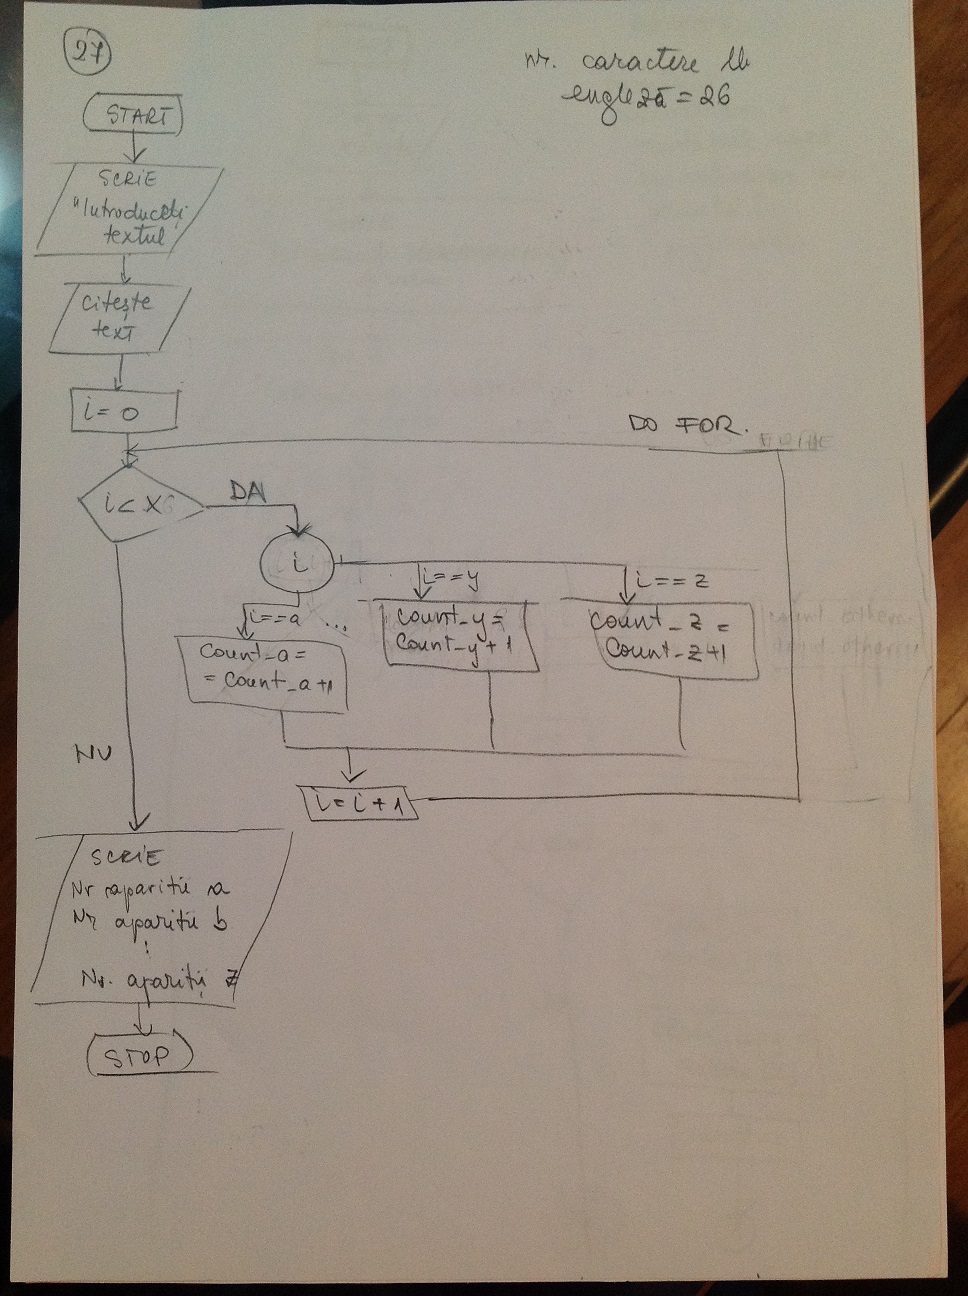 27
nr. caractere lb
engleză = 26
START
SCRIE
"Introduceți
textul
citește
text
i = 0
DO FOR.
i < X
DA
i
i==a
...
i==y
i == z
count_a =
= count_a +1
count_y =
count_y + 1
count_z =
count_z +1
i = i + 1
NU
SCRIE
Nr apariții a
Nr apariții b
⋮
Nr. apariții z
STOP